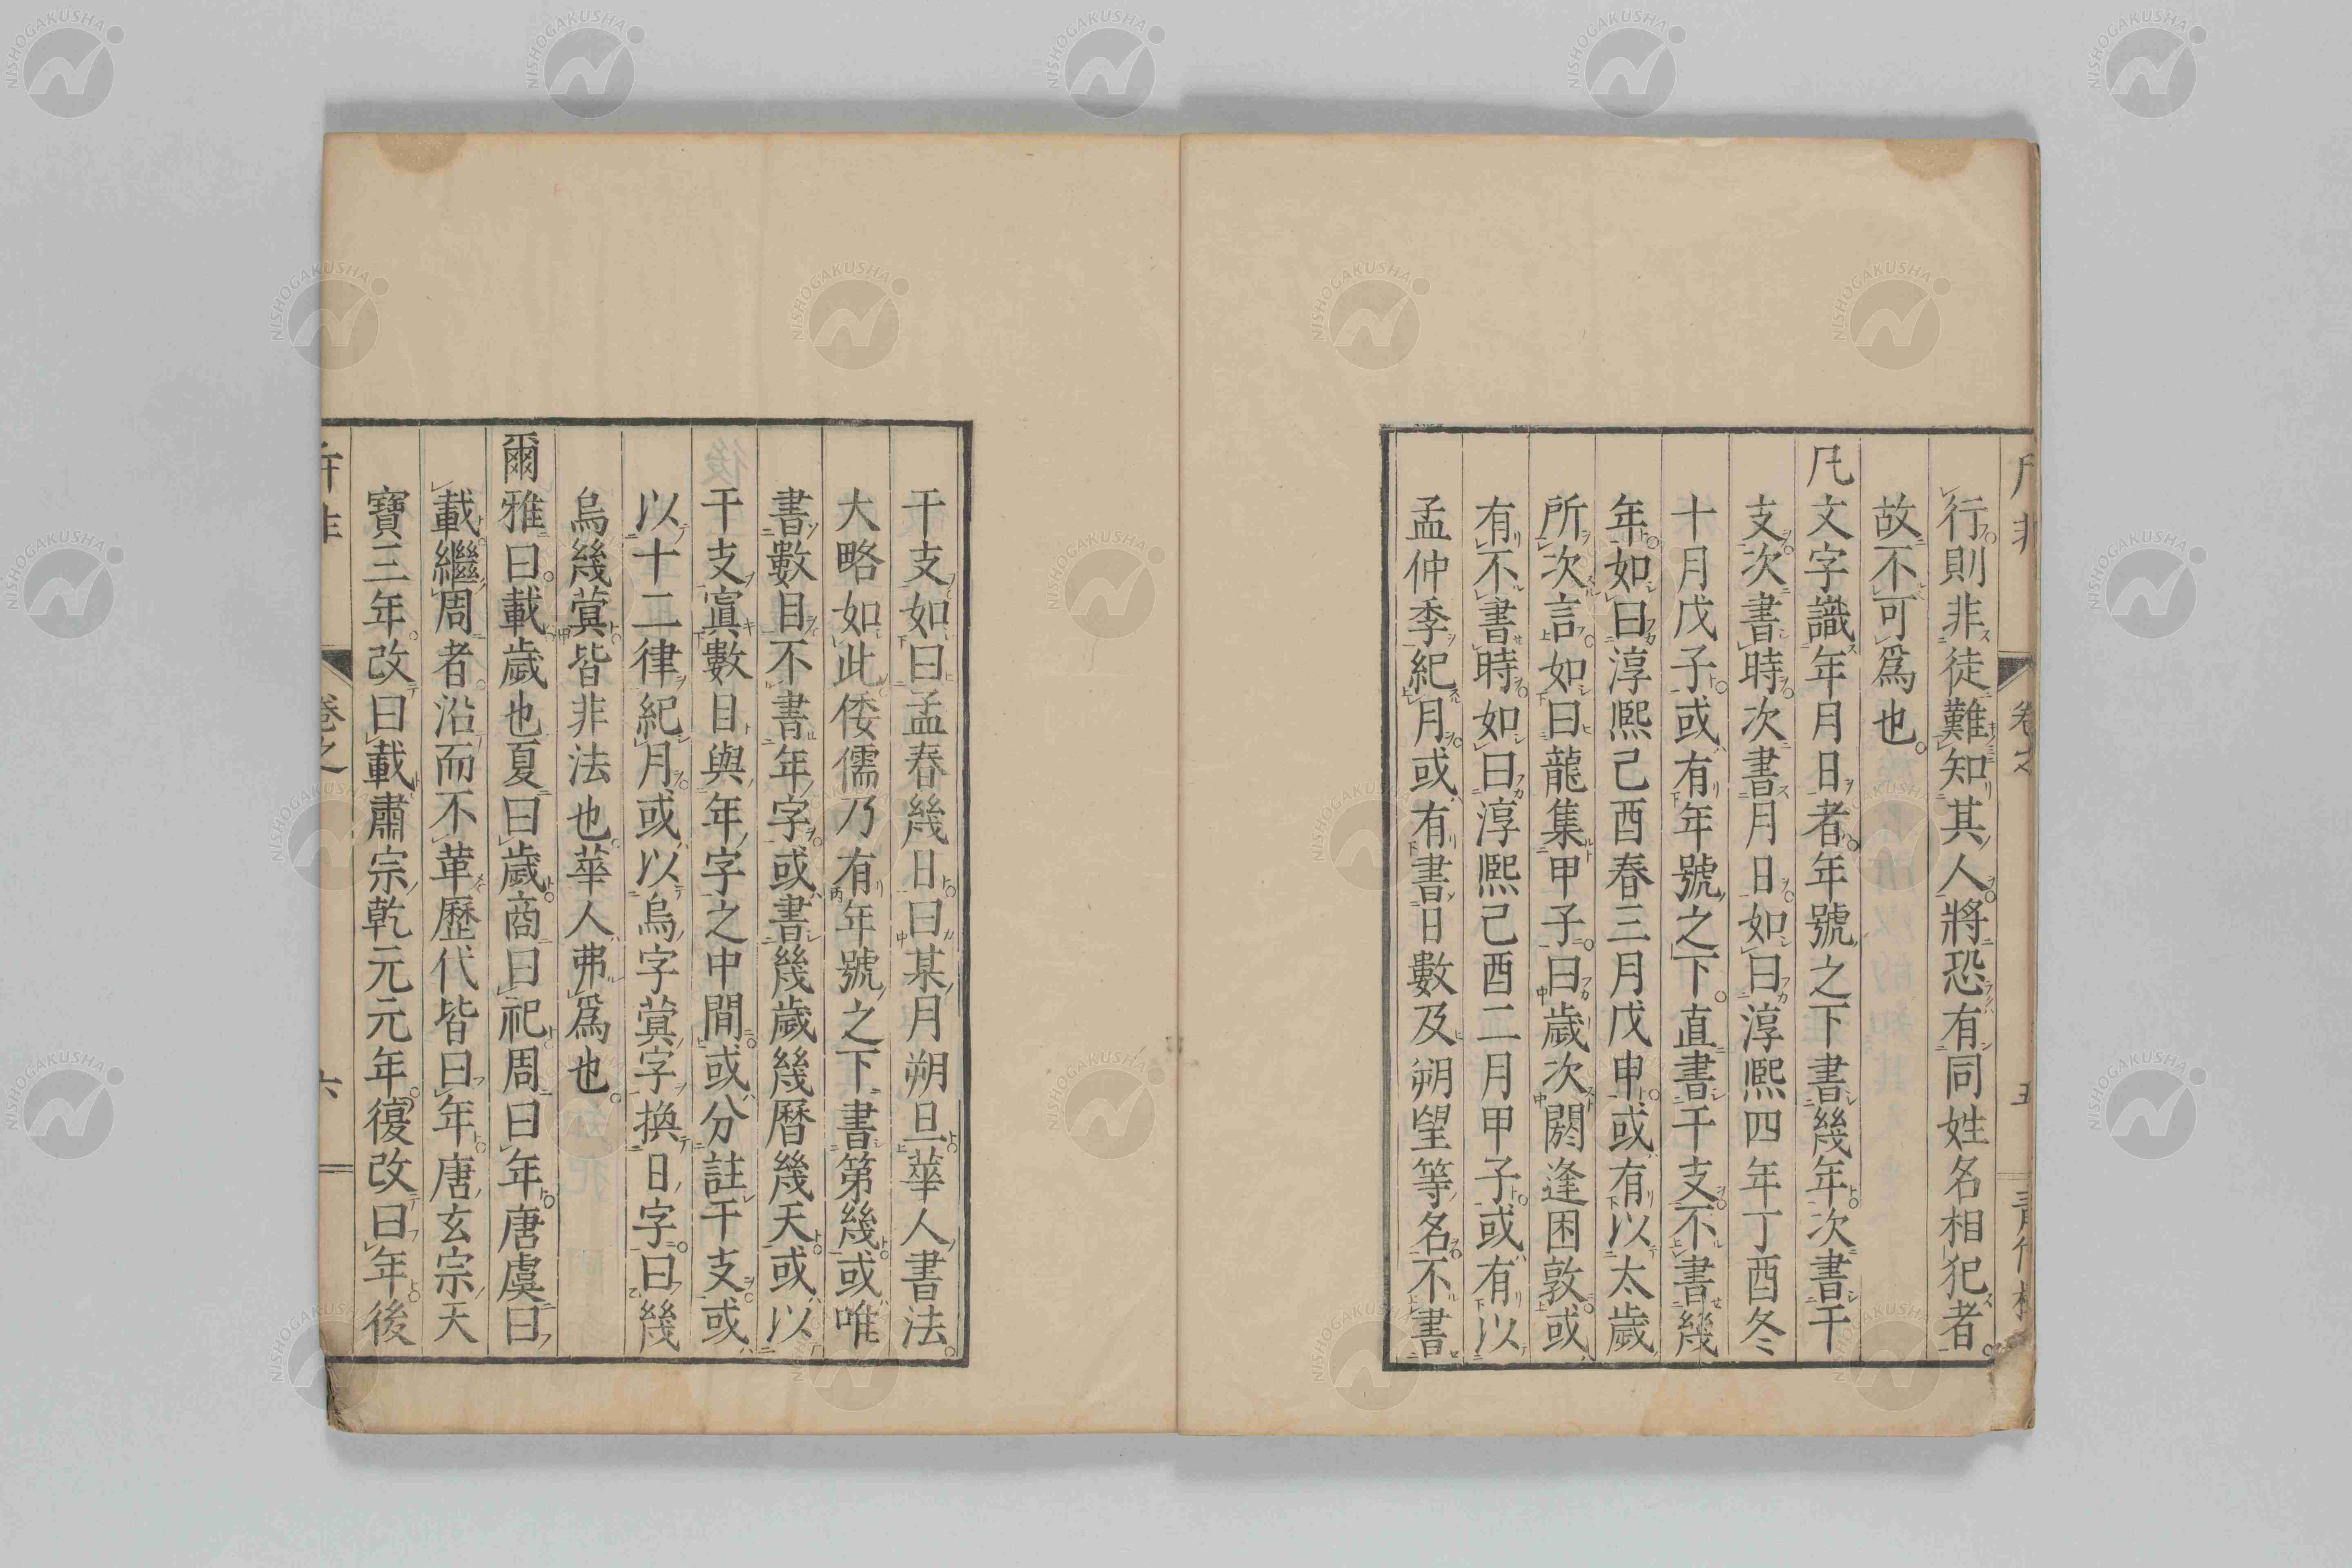 行則非徒難知其人將恐有同姓名相犯者
故不可爲也
凡文字識年月日者年號之下書幾年次書干
支次書時次書月日如曰淳熙四年丁酉冬
十月戊子或有年號之下直書干支不書幾
年如曰淳熙己酉春三月戊申或有以太歲
所次言如曰龍集甲子曰歲次閼逢困敦或
有不書時如曰淳熙己酉二月甲子或有以
孟仲季紀月或有書日數及朔望等名不書
干支如曰孟春幾日曰某月朔旦華人書法
大略如此倭儒乃有年號之下書第幾或唯
書數目不書年字或書幾歲幾曆幾天或以
干支寘數目與年字之中間或分註干支或
以十二律紀月或以烏字蓂字換日字曰幾
烏幾蓂皆非法也華人弗爲也
爾雅曰載歲也夏曰歲商曰祀周曰年唐虞曰
載繼周者沿而不革歷代皆曰年唐玄宗天
寶三年改曰載肅宗乾元元年復改曰年後
卷之
六
NISHOGAKUSHA